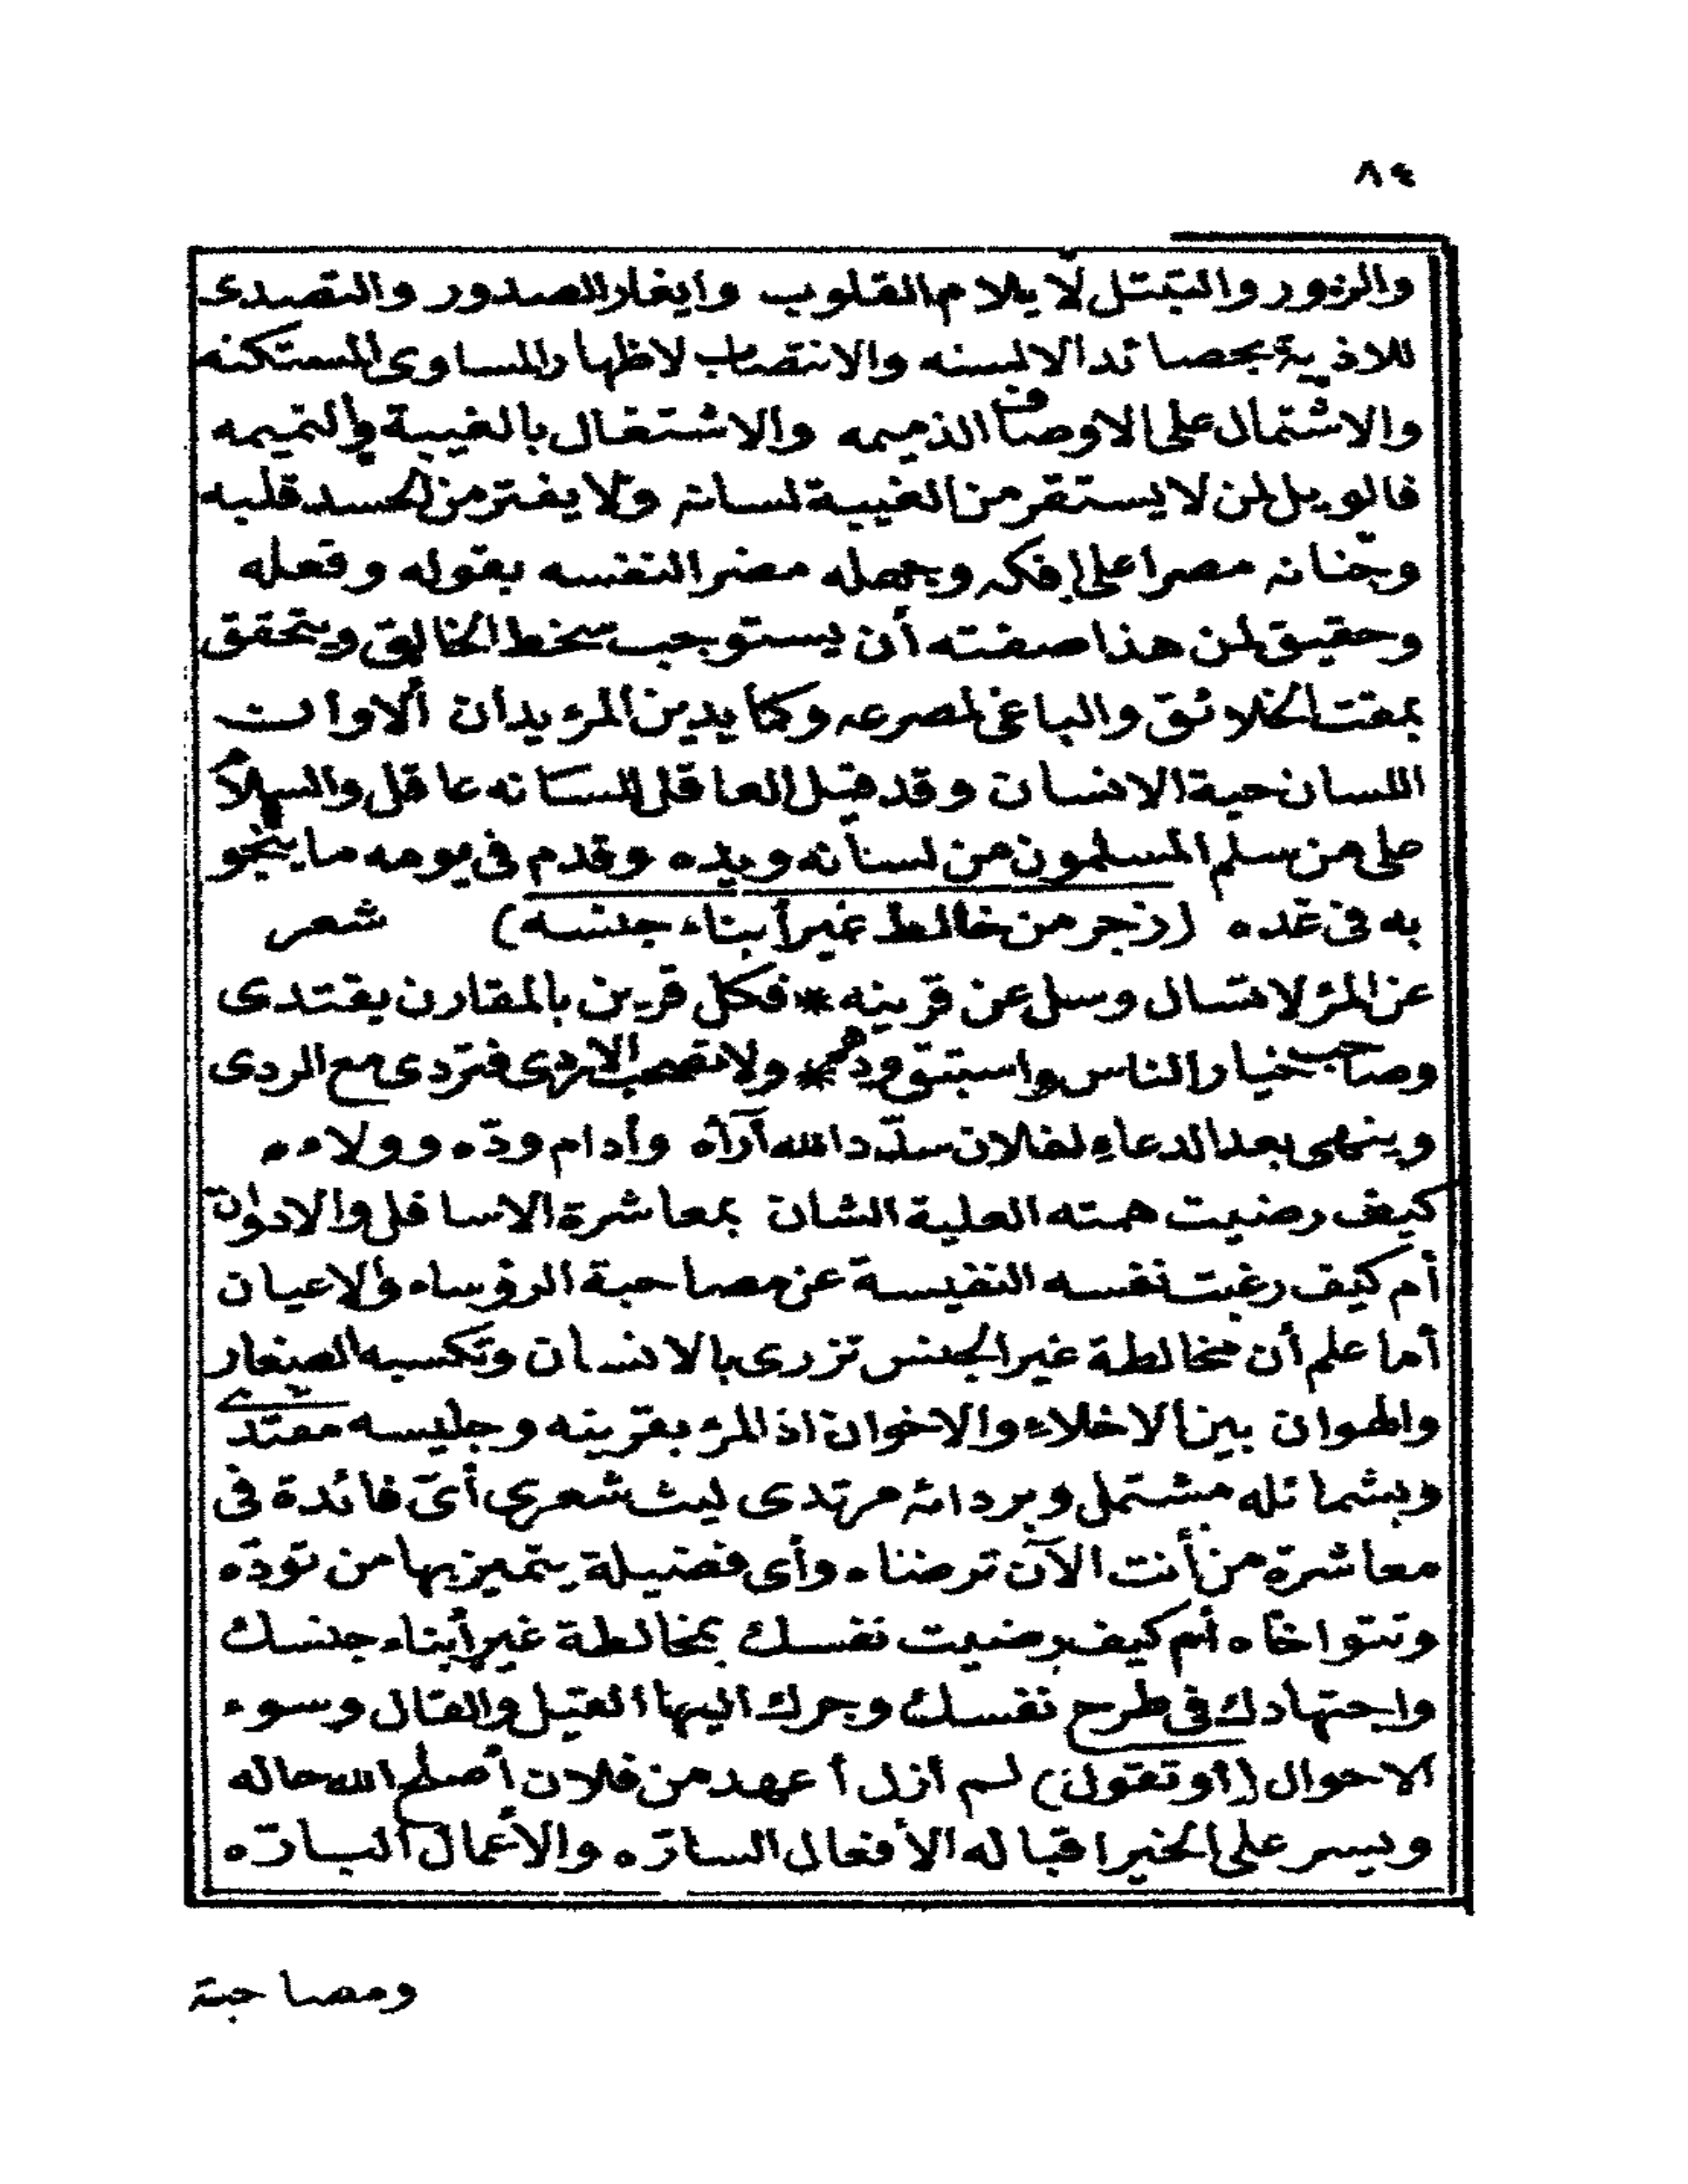 ٨٤
والزور والتبتل لايلام القلوب وايغار الصدور والتصدى
للاذية بحصائد الالسنه والانتصاب لاظهار المساوى المستكنه
والاشتمال على الاوصاف الذميمه والاشتغال بالغيبة والنميمه
فالويل لمن لا يستقر من الغيبة لسانه ولا يفتر من الحسد قلبه
وجنانه مصرا على إفكه وبجهله مضرا لنفسه بقوله وفعله
وحقيق لمن هذا صفته أن يستوجب سخط الخالق ويتحقق
بمقت الخلائق والباغى لمصرعه وكما يدين المرء يدان ألا وان
اللسان حية الانسان وقد قيل العاقل للسانه عاقل والسلام
على من سلم المسلمون من لسانه ويده وقدم فى يومه ما ينجو
به فى غده (زجر من خالط غير أبناء جنسه) شعر
عن المرء لا تسال وسل عن قرينه * فكل قرين بالمقارن يقتدى
وصاحب خيار الناس واستبق ودهم * ولا تصحب الاردى فتردى مع الردى
وينهى بعد الدعاء لفلان سدّد الله آرآه وأدام ودّه وولاءه
كيف رضيت همته العلية الشان بمعاشرة الاسافل والادوان
أم كيف رغبت نفسه النفيسة عن مصاحبة الرؤساء والاعيان
أما علم أن مخالطة غير الجنس تزرى بالانسان وتكسبه الصغار
والهوان بين الاخلاء والاخوان اذ المرء بقرينه وجليسه مقتدى
وبشمائله مشتمل وبردائه مرتدى ليث شعرى أىّ فائدة فى
معاشرة من أنت الآن ترضاه وأى فضيلة يتميز بها من تودّه
وتتواخاه أم كيف رضيت نفسك بمخالطة غير أبناء جنسك
واجتهادك فى طرح نفسك وجرك اليها القيل والقال وسوء
الاحوال (أو تقول) لم أزل أعهد من فلان أصلح الله حاله
ويسر على الخير اقباله الأفعال السارّه والأعمال البارّه
ومصاحبة